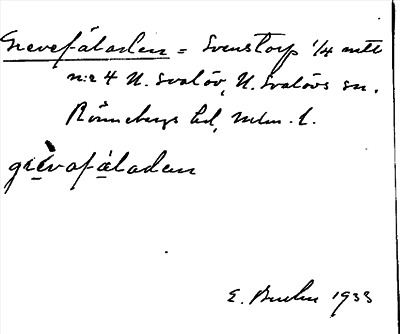 Grevefäladen = Svenstorp 1/4 mtl
n:r 4 N. Svalöv, N. Svalövs sn.
Rönnebergs hd, Mlm. l.
grèvafäladen
E. 1933